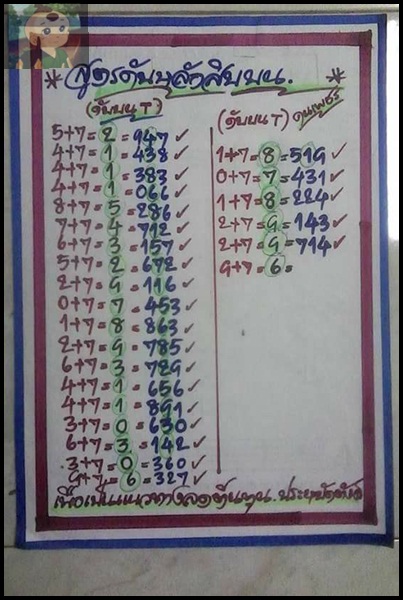 * สูตรดับบนสิบบน. *
(ดับบน T)
5+7=2=947✓
4+7=1=438✓
4+7=1=383✓
4+7=1=066✓
8+7=5=286✓
7+7=4=712✓
6+7=3=157✓
5+7=2=672✓
2+7=9=116✓
0+7=7=453✓
1+7=8=863✓
2+7=9=785✓
6+7=3=729✓
4+7=1=656✓
4+7=1=891✓
3+7=0=630✓
6+7=3=142✓
3+7=0=360✓
9+7=6=327✓
(ดับบน T) คนเพชร
1+7=8=519✓
0+7=7=431✓
1+7=8=224✓
2+7=9=143✓
2+7=9=714✓
9+7=6=
เพื่อเป็นแนวทางลดต้นทุน.ประหยัด